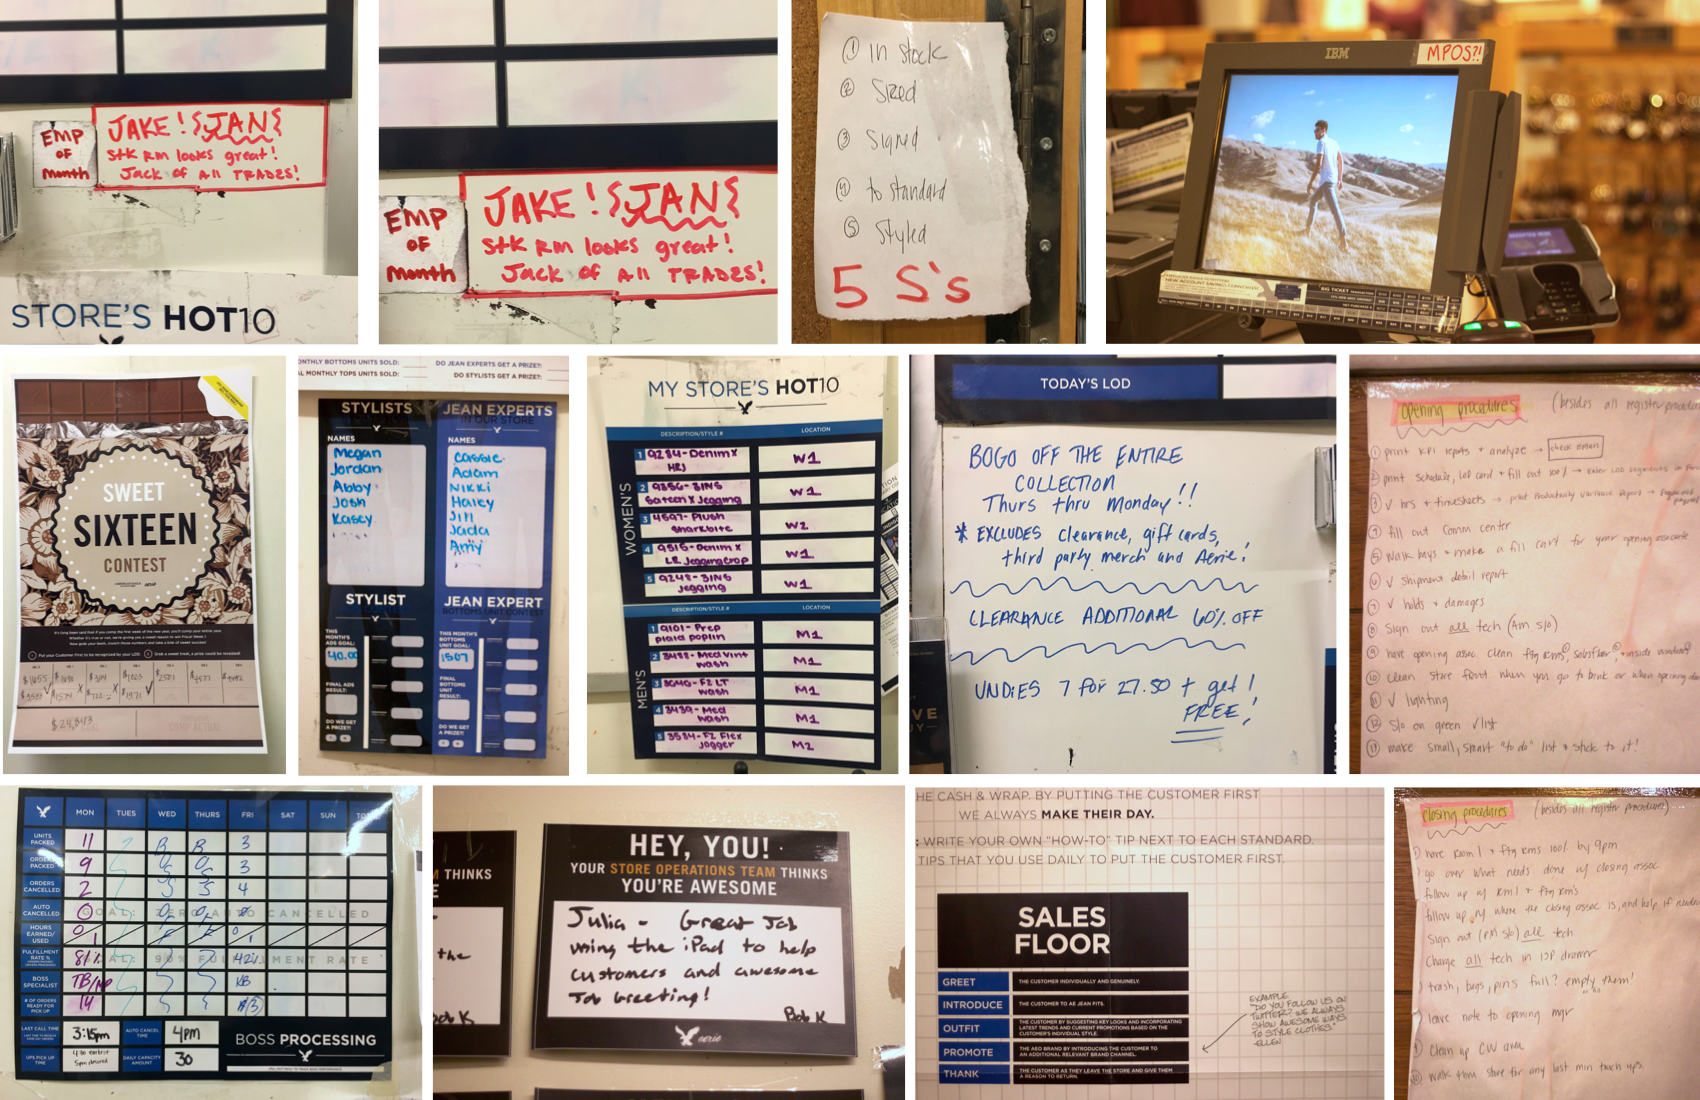 EMP
OF
Month
JAKE! JAN
Stk Rm looks great!
Jack of All TRADES!
STORE'S HOT10
EMP
OF
Month
JAKE! JAN
Stk Rm looks great!
Jack of All TRADES!
① In Stock
② Sized
③ Signed
④ to standard
⑤ Styled
5 S's
IBM
MPOS?!
BIG TICKET
SWEET
SIXTEEN
CONTEST
$24,843
MONTHLY BOTTOMS UNITS SOLD:
DO JEAN EXPERTS GET A PRIZE?:
MONTHLY TOPS UNITS SOLD:
DO STYLISTS GET A PRIZE?:
STYLISTS
JEAN EXPERTS
IN OUR STORE
NAMES
NAMES
Megan
Jordan
Abby
Josh
Kasey
Adam
Nikki
Haley
Jill
Jada
Amy
STYLIST
JEAN EXPERT
BOTTOMS UNIT CONTEST
THIS MONTH'S ADS GOAL:
40.00
THIS MONTH'S BOTTOMS UNIT GOAL:
1507
FINAL ADS RESULT:
FINAL BOTTOM UNIT RESULT:
DO WE GET A PRIZE?:
DO WE GET A PRIZE?:
MY STORE'S HOT10
DESCRIPTION/STYLE #
LOCATION
WOMEN'S
1 9284-Denim X
HRJ
W1
2 9856-SINS
Sateen X Jegging
W1
3 4597-Plush
Sharkbite
W2
4 9515-Denim X
LR Jegging crop
W1
5 9248-SINS
Jegging
W1
DESCRIPTION/STYLE #
LOCATION
MEN'S
1 9101-Prep
plaid poplin
M1
2 3488-Med vint
wash
M1
3 3040-F2 LT
wash
M1
4 3439-Med
wash
M1
5 3584-F2 Flex
Jogger
M2
TODAY'S LOD
BOGO OFF THE ENTIRE
COLLECTION
Thurs thru Monday!!
* EXCLUDES Clearance, gift cards,
third party merch and Aerie!
CLEARANCE ADDITIONAL 60% OFF
UNDIES 7 for 27.50 + get 1
FREE!
opening procedures (besides all register procedures
① print KPI reports + analyze → check return
② print schedule, LOD card + fill out 100% → Enter LOD segments in
③ ✓ hrs + timesheets → print Productivity Variance Report →
④ fill out Comm center
⑤ walk bays + make a fill cart for your opening associate
⑥ ✓ shipment detail report
⑦ ✓ holds + damages
⑧ Sign out all tech (Am s/o)
⑨ have opening assoc. clean ftg rms, salesfloor, + inside windows
⑩ clean store front when you go to bank or when opening door
⑪ ✓ lighting
⑫ s/o on green ✓list
⑬ make small, smart "to do" list + stick to it!
MON TUES WED THURS FRI SAT SUN
UNITS PACKED 11 3
ORDERS PACKED 9 3
ORDERS CANCELLED 2 4
AUTO CANCELLED 0
GOAL: ZERO AUTO CANCELLED
HOURS EARNED/USED 0/1
FULFILLMENT RATE % 81% 42%
GOAL: 90% FULFILLMENT RATE
BOSS SPECIALIST KB
# OF ORDERS READY FOR PICK UP 14
LAST CALL TIME
3:15pm
AUTO CANCEL TIME
4pm
BOSS PROCESSING
UPS PICK UP TIME
4:30 earliest
5pm desired
DAILY CAPACITY AMOUNT
30
M THINKS
the
Bob K
HEY, YOU!
YOUR STORE OPERATIONS TEAM THINKS
YOU'RE AWESOME
Julia - Great Job
using the iPad to help
customers and awesome
Job Greeting!
Bob K
aerie
HE CASH & WRAP. BY PUTTING THE CUSTOMER FIRST
WE ALWAYS MAKE THEIR DAY.
: WRITE YOUR OWN "HOW-TO" TIP NEXT TO EACH STANDARD.
TIPS THAT YOU USE DAILY TO PUT THE CUSTOMER FIRST.
SALES
FLOOR
GREET THE CUSTOMER INDIVIDUALLY AND GENUINELY.
INTRODUCE THE CUSTOMER TO AE JEAN FITS.
OUTFIT THE CUSTOMER BY SUGGESTING KEY LOOKS AND INCORPORATING
LATEST TRENDS AND CURRENT PROMOTIONS BASED ON THE
CUSTOMER'S INDIVIDUAL STYLE.
PROMOTE THE AEO BRAND BY INTRODUCING THE CUSTOMER TO
AN ADDITIONAL RELEVANT BRAND CHANNEL.
THANK THE CUSTOMER AS THEY LEAVE THE STORE AND GIVE THEM
A REASON TO RETURN.
EXAMPLE
"DO YOU FOLLOW US ON
TWITTER? WE ALWAYS
SHOW AWESOME WAYS
TO STYLE CLOTHES."
-ELLEN
closing procedures (besides all register procedures)
have Room 1 + ftg rms 100% by 9pm
go over what needs done w/ closing assoc
follow up w/ Rm 1 + ftg rm's
follow up w/ where the closing assoc is, and help if needed
Sign out (PM s/o) all tech
Charge all tech in ISP drawer
trash, bags, pins full? empty them!
leave note to opening mgr
⑨ Clean up CW area
⑩ walk thru store for any last min touch ups